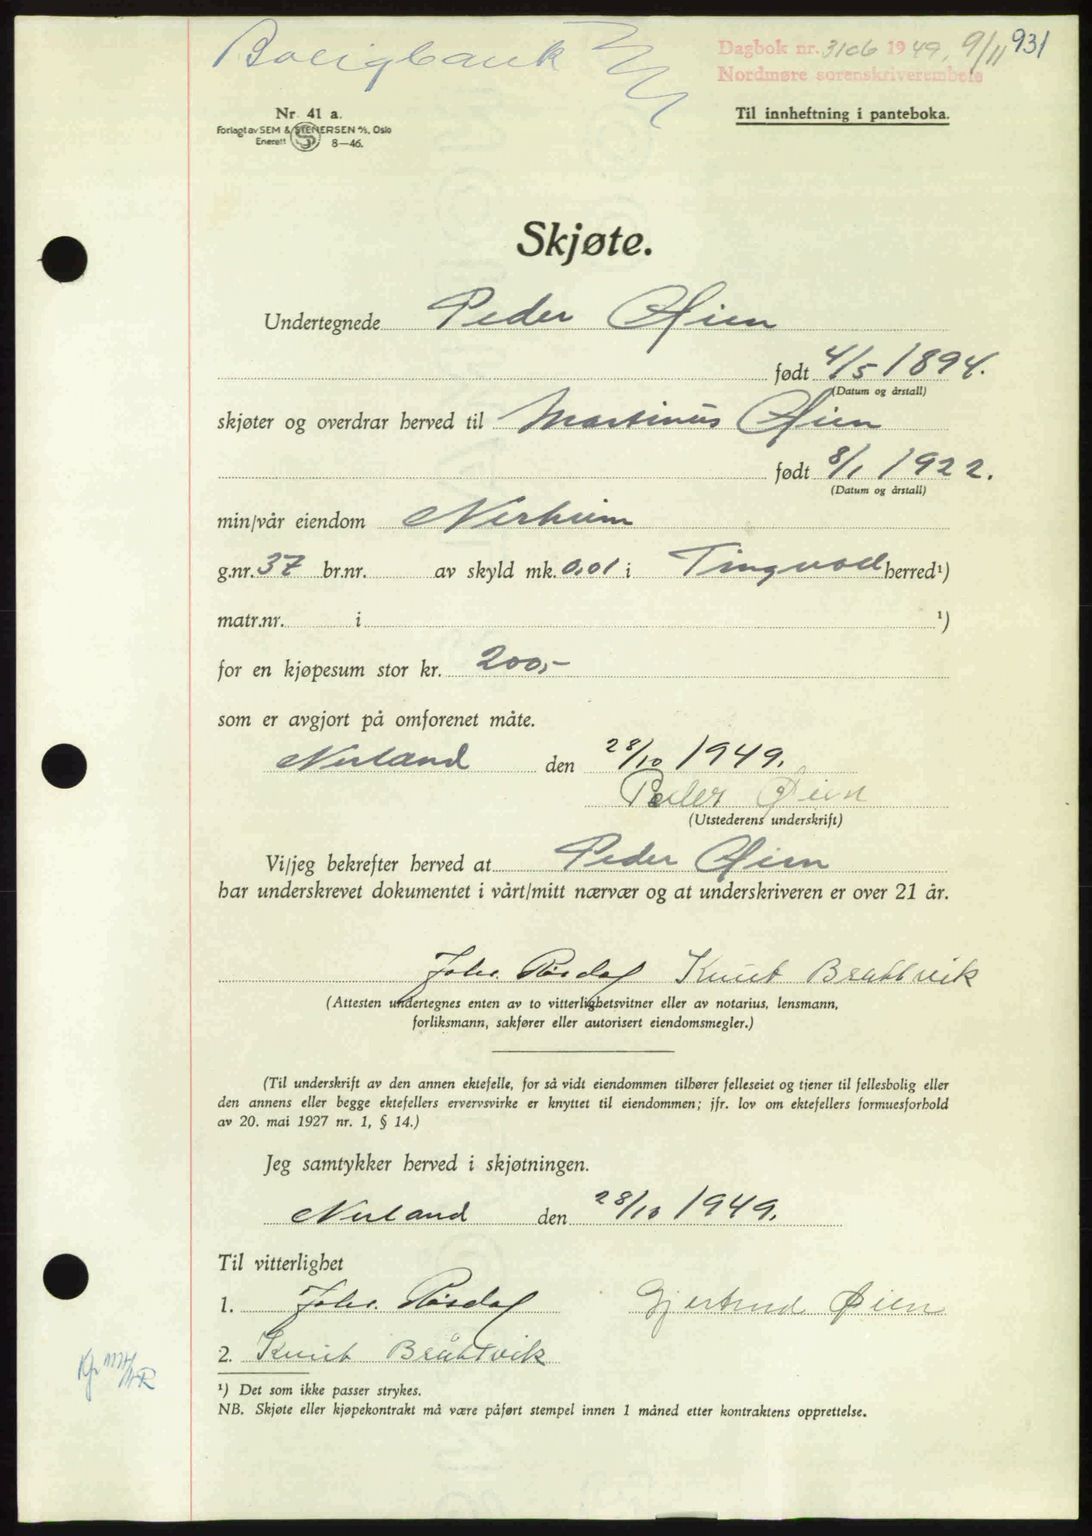 Boligbank
Dagbok nr. 3106 1949, 9/11 931
Nordmøre sorenskriverembete
Nr. 41 a.
Til innheftning i panteboka.
Forlagt av SEM & STENERSEN A/S, Oslo
Enerett 8—46.
Skjøte.
Undertegnede Peder Øien
født 4/5 1894.
(Datum og årstall)
skjøter og overdrar herved til Martinus Øien
født 8/1 1922.
(Datum og årstall)
min/vår eiendom Nerheim
g.nr. 37 br.nr. av skyld mk. 0,01 i Tingvoll herred¹)
matr.nr. i ¹)
for en kjøpesum stor kr. 200,-
som er avgjort på omforenet måte.
Nerland den 28/10 1949.
Peder Øien
(Utstederens underskrift)
Vi/jeg bekrefter herved at Peder Øien
har underskrevet dokumentet i vårt/mitt nærvær og at underskriveren er over 21 år.
Johs. Røsdal Knut Bråttvik
(Attesten undertegnes enten av to vitterlighetsvitner eller av notarius, lensmann,
forliksmann, sakfører eller autorisert eiendomsmegler.)
(Til underskrift av den annen ektefelle, for så vidt eiendommen tilhører felleseiet og tjener til fellesbolig eller
den annens eller begge ektefellers ervervsvirke er knyttet til eiendommen; jfr. lov om ektefellers formuesforhold
av 20. mai 1927 nr. 1, § 14.)
Jeg samtykker herved i skjøtningen.
Nerland den 28/10 1949.
Til vitterlighet
1. Johs. Røsdal Gjertrud Øien
2. Knut Bråttvik
¹) Det som ikke passer strykes.
NB. Skjøte eller kjøpekontrakt må være påført stempel innen 1 måned etter kontraktens opprettelse.